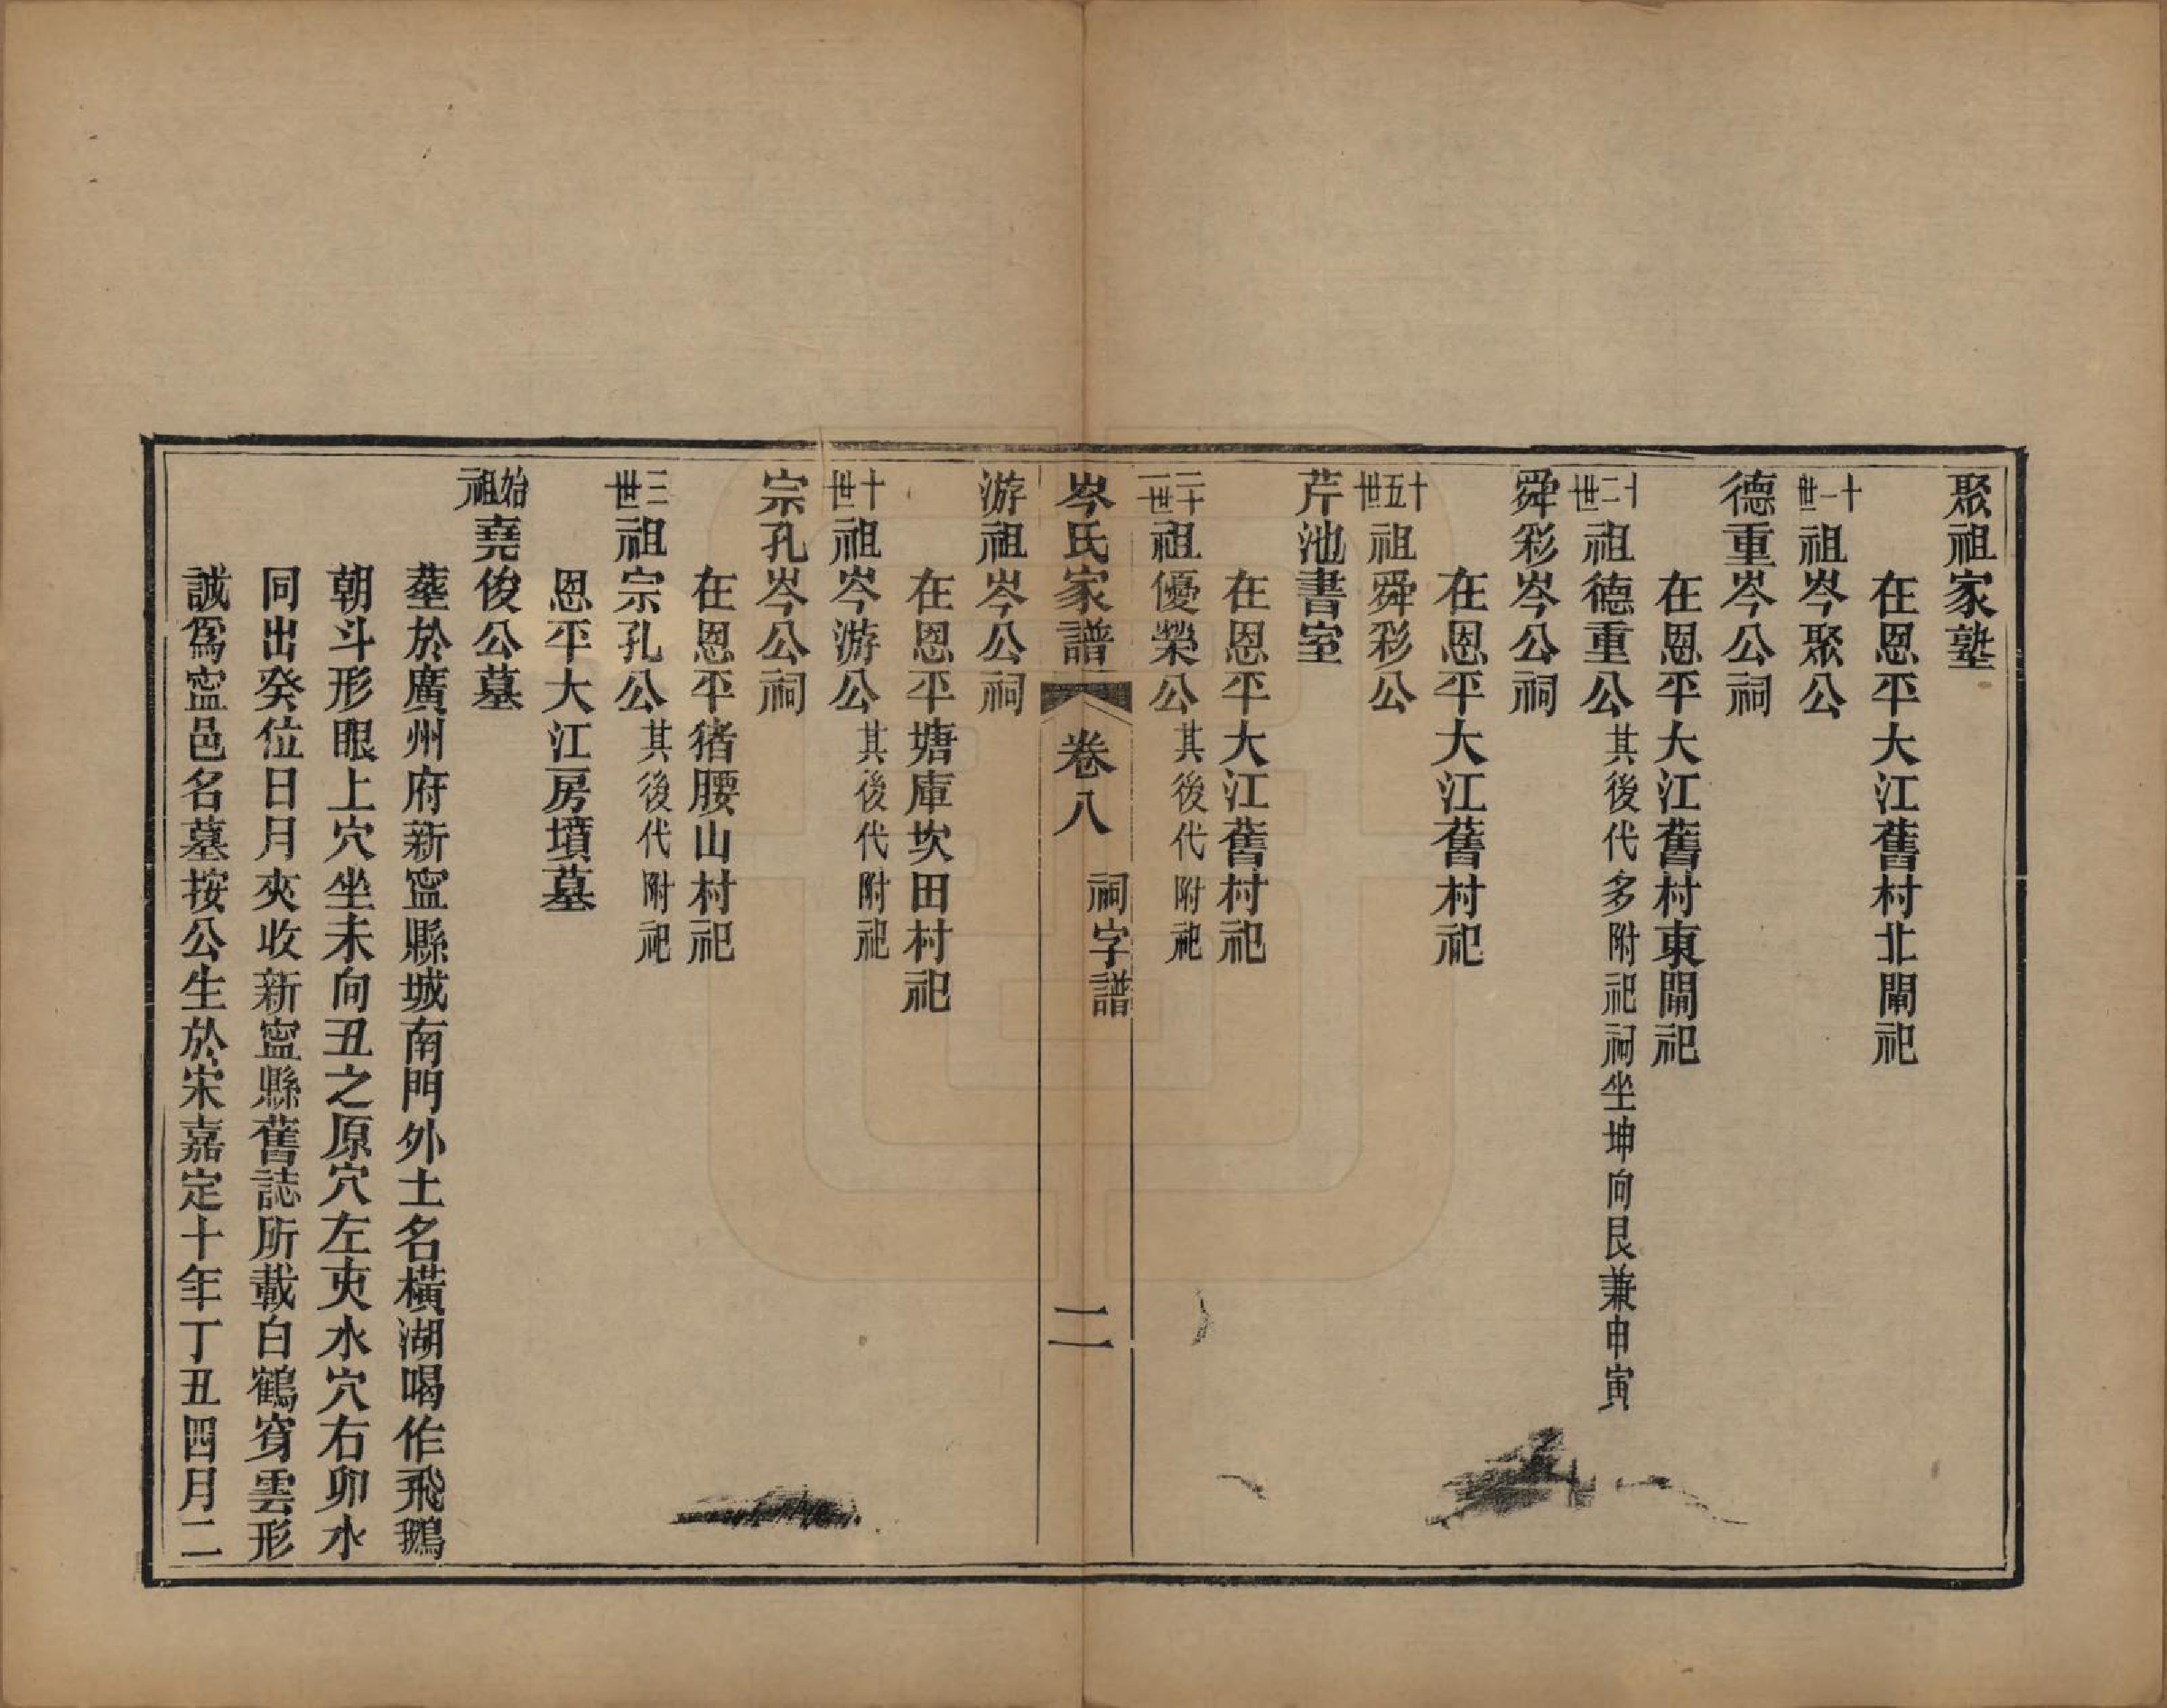 聚祖家塾
在恩平大江舊村北閘祀
十一世祖岑聚公
德重岑公祠
在恩平大江舊村東閘祀
十二世祖德重公其後代多附祀祠坐坤向艮兼申寅
舜彩岑公祠
在恩平大江舊村祀
十五世祖舜彩公
芹池書室
在恩平大江舊村祀
二十一世祖優榮公其後代附祀
岑氏家譜 卷八 祠宇譜 二
游祖岑公祠
在恩平塘庫坎田村祀
十世祖岑游公其後代附祀
宗孔岑公祠
在恩平猪腰山村祀
三世祖宗孔公其後代附祀
恩平大江房墳墓
始祖堯俊公墓
塟於廣州府新寍縣城南門外土名橫湖喝作飛鵝
朝斗形眼上穴坐未向丑之原穴左夾水穴右卯水
同出癸位日月夾收新寍縣舊誌所載白鶴穿雲形
誠爲寍邑名墓按公生於宋嘉定十年丁丑四月二